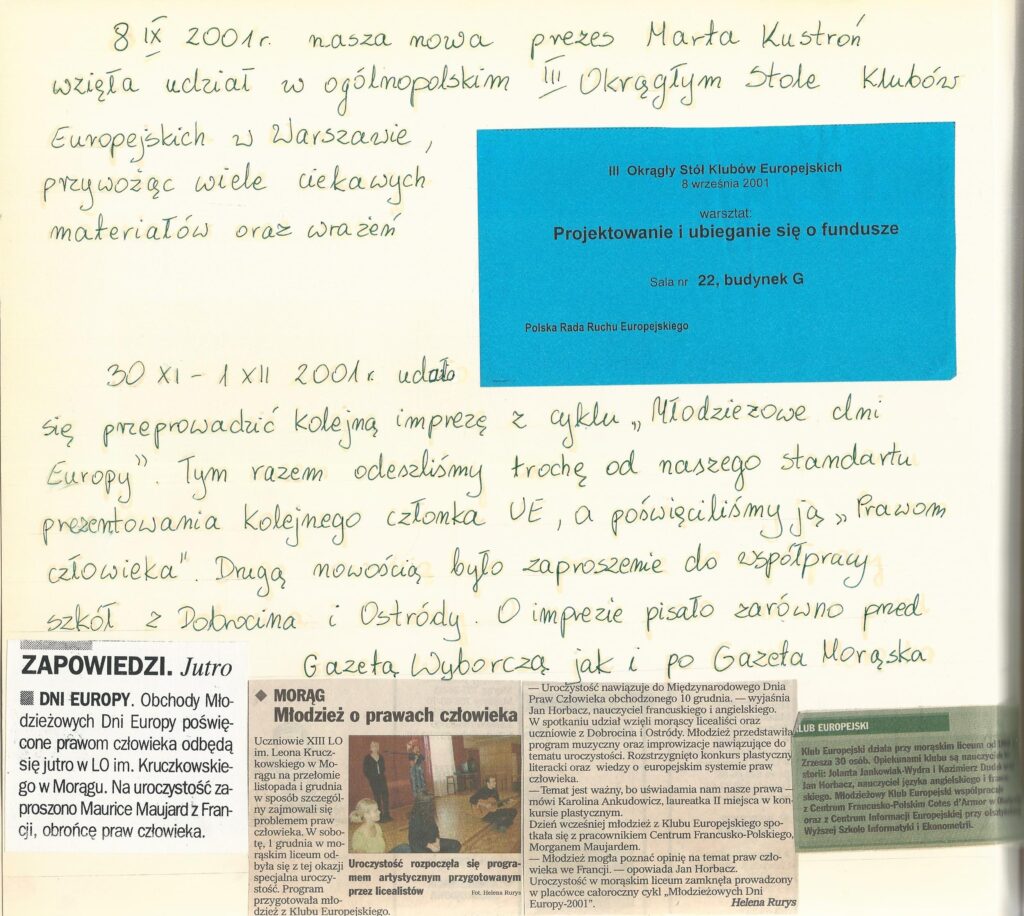 8 IX 2001r. nasza nowa prezes Marta Kustroń
wzięła udział w ogólnopolskim III Okrągłym Stole Klubów
Europejskich w Warszawie,
przywożąc wiele ciekawych
materiałów oraz wrażeń
III Okrągły Stół Klubów Europejskich
8 września 2001
warsztat:
Projektowanie i ubieganie się o fundusze
Sala nr 22, budynek G
Polska Rada Ruchu Europejskiego
30 XI – 1 XII 2001r. udało
się przeprowadzić kolejną imprezę z cyklu „Młodzieżowe dni
Europy”. Tym razem odeszliśmy trochę od naszego standartu
prezentowania kolejnego członka UE, a poświęciliśmy ją „Prawom
człowieka”. Drugą nowością było zaproszenie do współpracy
szkół z Dobrocina i Ostródy. O imprezie pisało zarówno przed
Gazetą Wyborczą jak i po Gazeta Morąska
ZAPOWIEDZI. Jutro
DNI EUROPY. Obchody Mło-
dzieżowych Dni Europy poświę-
cone prawom człowieka odbędą
się jutro w LO im. Kruczkowskie-
go w Morągu. Na uroczystość za-
proszono Maurice Maujard z Fran-
cji, obrońcę praw człowieka.
MORĄG
Młodzież o prawach człowieka
Uczniowie XIII LO
im. Leona Krucz-
kowskiego w Mo-
rągu na przełomie
listopada i grudnia
w sposób szczegól-
ny zajmowali się
problemem praw
człowieka. W sobo-
tę, 1 grudnia w mo-
rąskim liceum od-
była się z tej okazji
specjalna uroczy-
stość. Program
przygotowała mło-
dzież z Klubu Europejskiego.
Uroczystość rozpoczęła się progra-
mem artystycznym przygotowanym
przez licealistów
Fot. Helena Rurys
— Uroczystość nawiązuje do Międzynarodowego Dnia
Praw Człowieka obchodzonego 10 grudnia. — wyjaśnia
Jan Horbacz, nauczyciel francuskiego i angielskiego.
W spotkaniu udział wzięli morąscy licealiści oraz
uczniowie z Dobrocina i Ostródy. Młodzież przedstawiła
program muzyczny oraz improwizacje nawiązujące do
tematu uroczystości. Rozstrzygnięto konkurs plastyczny
literacki oraz wiedzy o europejskim systemie praw
człowieka.
— Temat jest ważny, bo uświadamia nam nasze prawa —
mówi Karolina Ankudowicz, laureatka II miejsca w kon-
kursie plastycznym.
Dzień wcześniej młodzież z Klubu Europejskiego spo-
tkała się z pracownikiem Centrum Francusko-Polskiego,
Morganem Maujardem.
— Młodzież mogła poznać opinię na temat praw czło-
wieka we Francji. — opowiada Jan Horbacz.
Uroczystość w morąskim liceum zamknęła prowadzony
w placówce całoroczny cykl „Młodzieżowych Dni
Europy-2001".
Helena Rurys
LUB EUROPEJSKI
Klub Europejski działa przy morąskim liceum od
Zrzesza 30 osób. Opiekunami klubu są nauczyciele
storii: Jolanta Jankowiak-Wydra i Kazimierz
Jan Horbacz, nauczyciel języka angielskiego i
skiego. Młodzieżowy Klub Europejski współpracuje
z Centrum Francusko-Polskim Cotes d'Armor w
oraz z Centrum Informacji Europejskiej przy
Wyższej Szkole Informatyki i Ekonometrii.